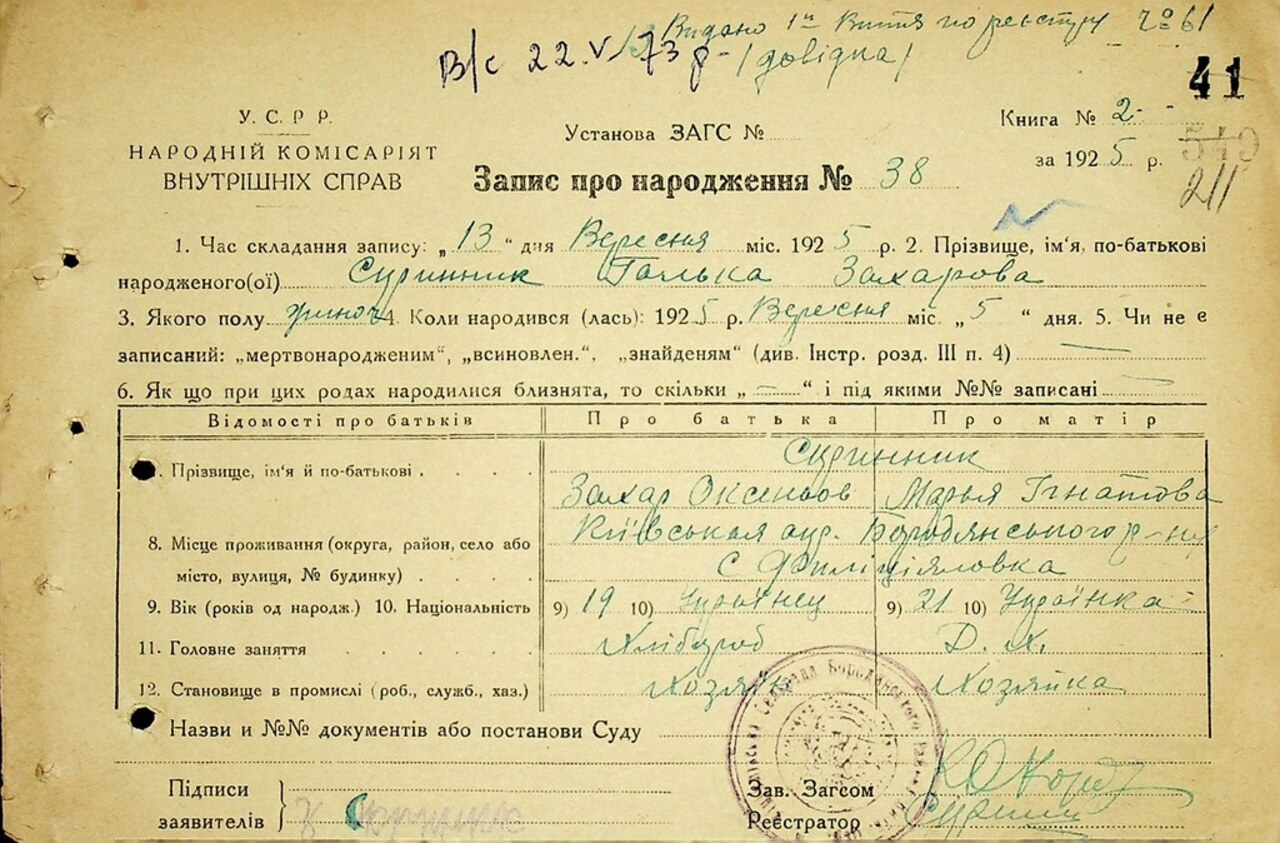 Видано 1й Витяг по реєстру № 61
В/с 22.V-73 р. (довідка)
41
У.С.Р.Р.
НАРОДНІЙ КОМІСАРІЯТ
ВНУТРІШНІХ СПРАВ
Установа ЗАГС №
Книга № 2
за 1925 р.
549
211
Запис про народження № 38
1. Час складання запису: „13“ дня Вересня міс. 1925 р. 2. Прізвище, ім'я, по-батькові
народженого(ої) Скринник Галька Захарова
3. Якого полу жіноч 4. Коли народився (лась): 1925 р. Вересня міс. „5“ дня. 5. Чи не є
записаний: „мертвонародженим“, „всиновлен.“, „знайденям“ (див. Інстр. розд. III п. 4) —
6. Як що при цих родах народилися близнята, то скільки „—“ і під якими №№ записані —
Відомості про батьків Про батька Про матір
Прізвище, ім'я й по-батькові . . . . Скринник
Захар Оксеньов Марья Ігнатова
8. Місце проживання (округа, район, село або
місто, вулиця, № будинку) . . . .
Київськая окр. Бородянського р-на
с Филіціяловка
9. Вік (років од народж.) 10. Національність 9) 19 10) Українец 9) 21 10) Українка
11. Головне заняття . . . . . . Хлібороб Д. Х.
12. Становище в промислі (роб., служб., хаз.) Хозяін Хозяйка
Назви и №№ документів або постанови Суду
Підписи
заявителів
З Скринник
Зав. Загсом
Реєстратор
Сільрада Бородянського